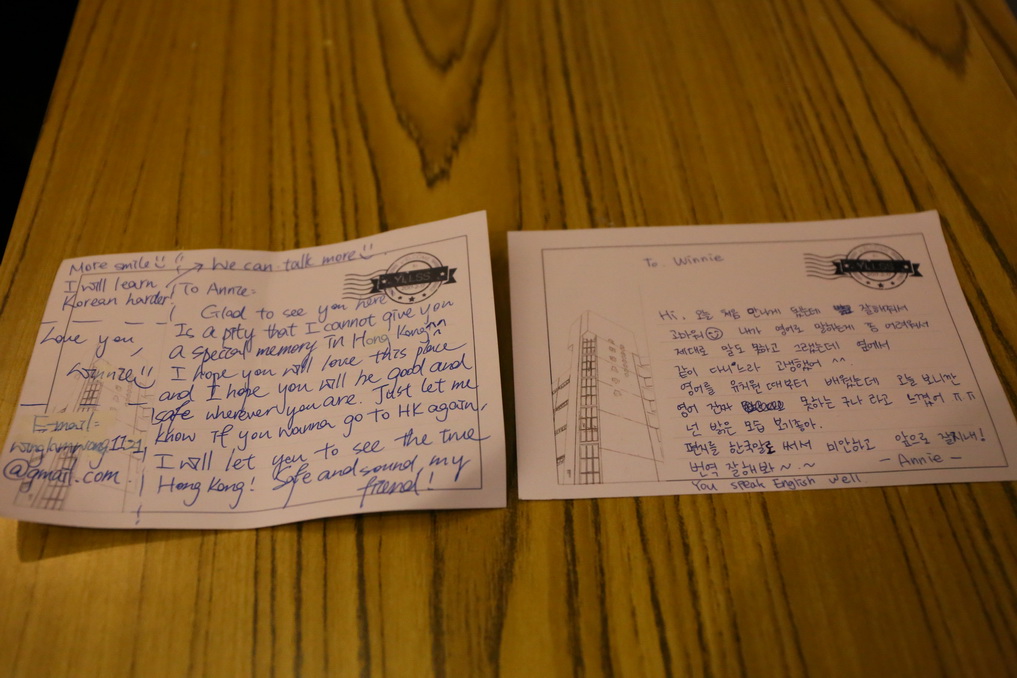 More smile
We can talk more
I will learn
Korean harder!
To Annie=
Glad to see you here
Is a pity that I cannot give you
a special memory in Hong Kong
I hope you will love this place
and I hope you will be good and
safe wherever you are. Just let me
know if you wanna go to HK again,
I will let you to see the true
Hong Kong! Safe and sound, my
friend!
Love you,
Winnie
E-mail=
@gmail.com
YLLSS
To. Winnie
Hi. 오늘 처음 만나게 됐는데 잘해줘서
고마워 내가 영어로 말하는게 좀 어려워서
제대로 말도 못하고 그랬는데 옆에서
같이 다니느라 고생했어 ^^
영어를 유치원 때부터 배웠는데 오늘 보니깐
영어 진짜 못하는구나 라고 느꼈어 ㅠㅠ
넌 밝은 모습 보기좋아.
편지를 한국어로 써서 미안하고 앞으로 잘지내!
번역 잘해봐~.~
- Annie -
You speak English well
YLLSS